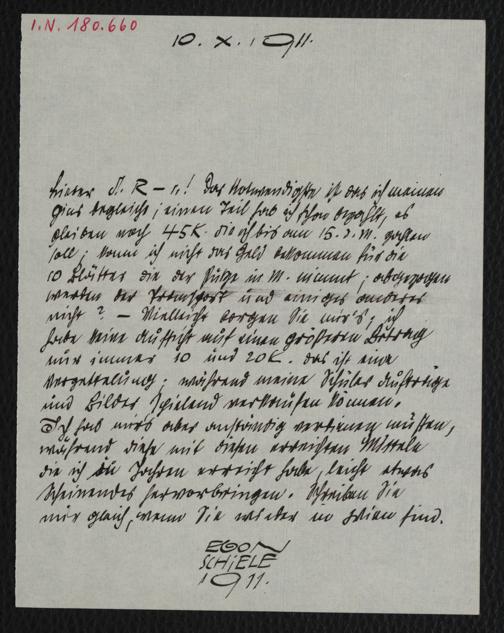 I.N. 180.660
10. X. 1911.
Lieber D. R – r.! Das Notwendigste ist das ich meinen
Zins begleiche; einen Teil hab ich schon bezahlt, es
bleiben noch 45 K. die ich bis am 15. d. M. zahlen
soll; kann ich nicht das Geld bekommen für die
10 Blätter die der in M. nimmt; abgezogen
werden der Transport und einiges anderes
nicht? – Vielleicht borgen Sie mir's; ich
habe keine Aussicht auf einen größeren Betrag
nur immer 10 und 20 K. das ist eine
Verzettelung; während meine Schüler Aufträge
und Bilder spielend verkaufen können.
Ich hab mirs aber anständig verdienen müssen,
während diese mit diesen erreichten Mitteln
die ich in Jahren erreicht habe, leicht etwas
Scheinendes hervorbringen. Schreiben Sie
mir gleich, wenn Sie wieder in Wien sind.
EGON
SCHIELE
1911.